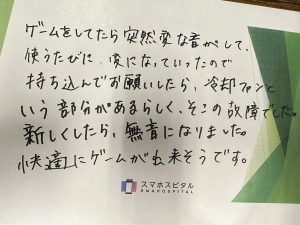 ゲームをしてたら突然変な音がして、
使うたびに、変になっていったので
持ち込んでお願いしたら、冷却ファンと
いう部分があるらしく、そこの故障でした。
新しくしたら、無音になりました。
快適にゲームが出来そうです。
スマホスピタル
SMAHOSPITAL